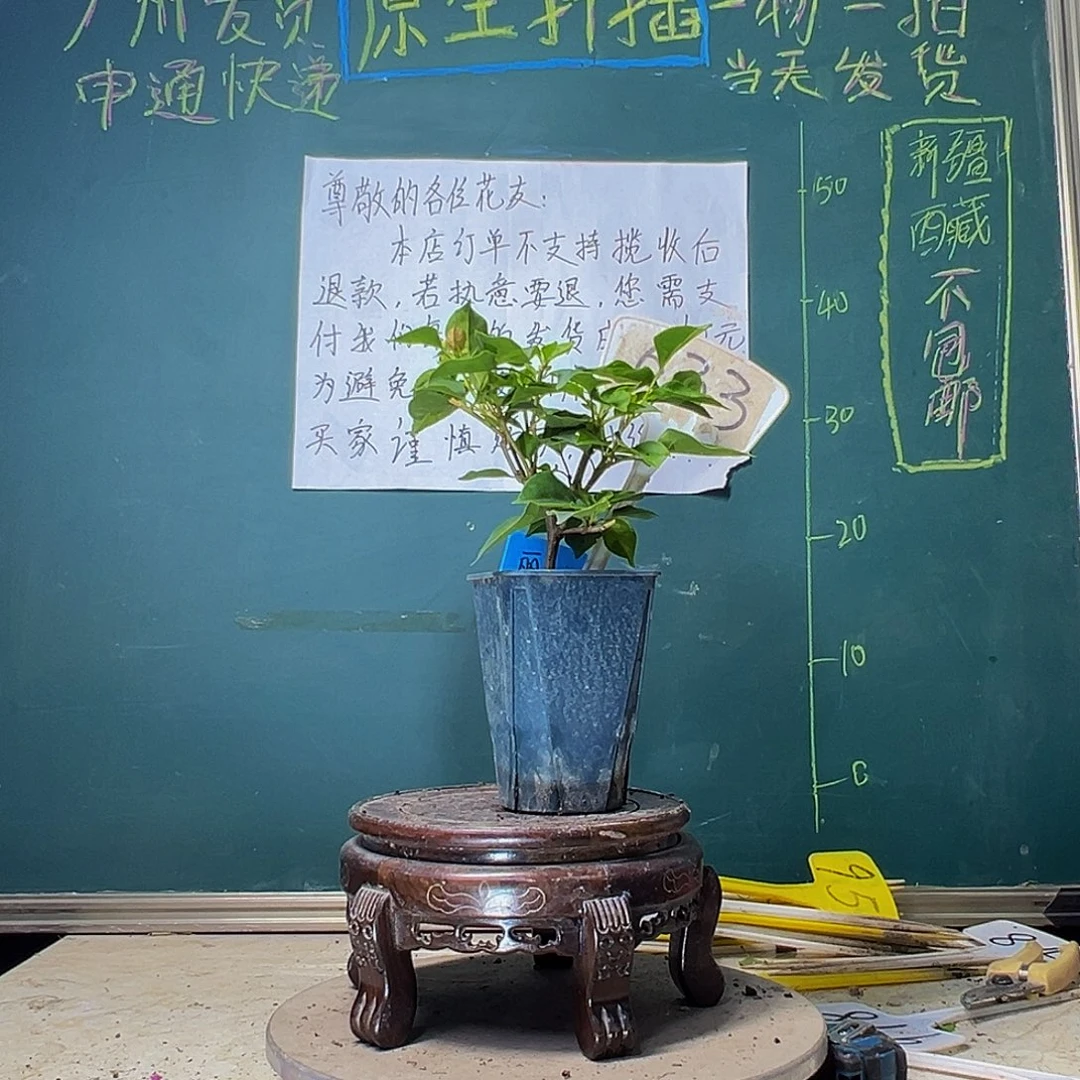 广州发货
原生扦插
一物一拍
申通快递
当天发货
新疆
西藏
不包邮
尊敬的各位花友:
本店订单不支持揽收后
退款,若执意要退,您需支
付我们 的发货 元
为避免
买家谨慎
633
50
40
30
20
10
0
95